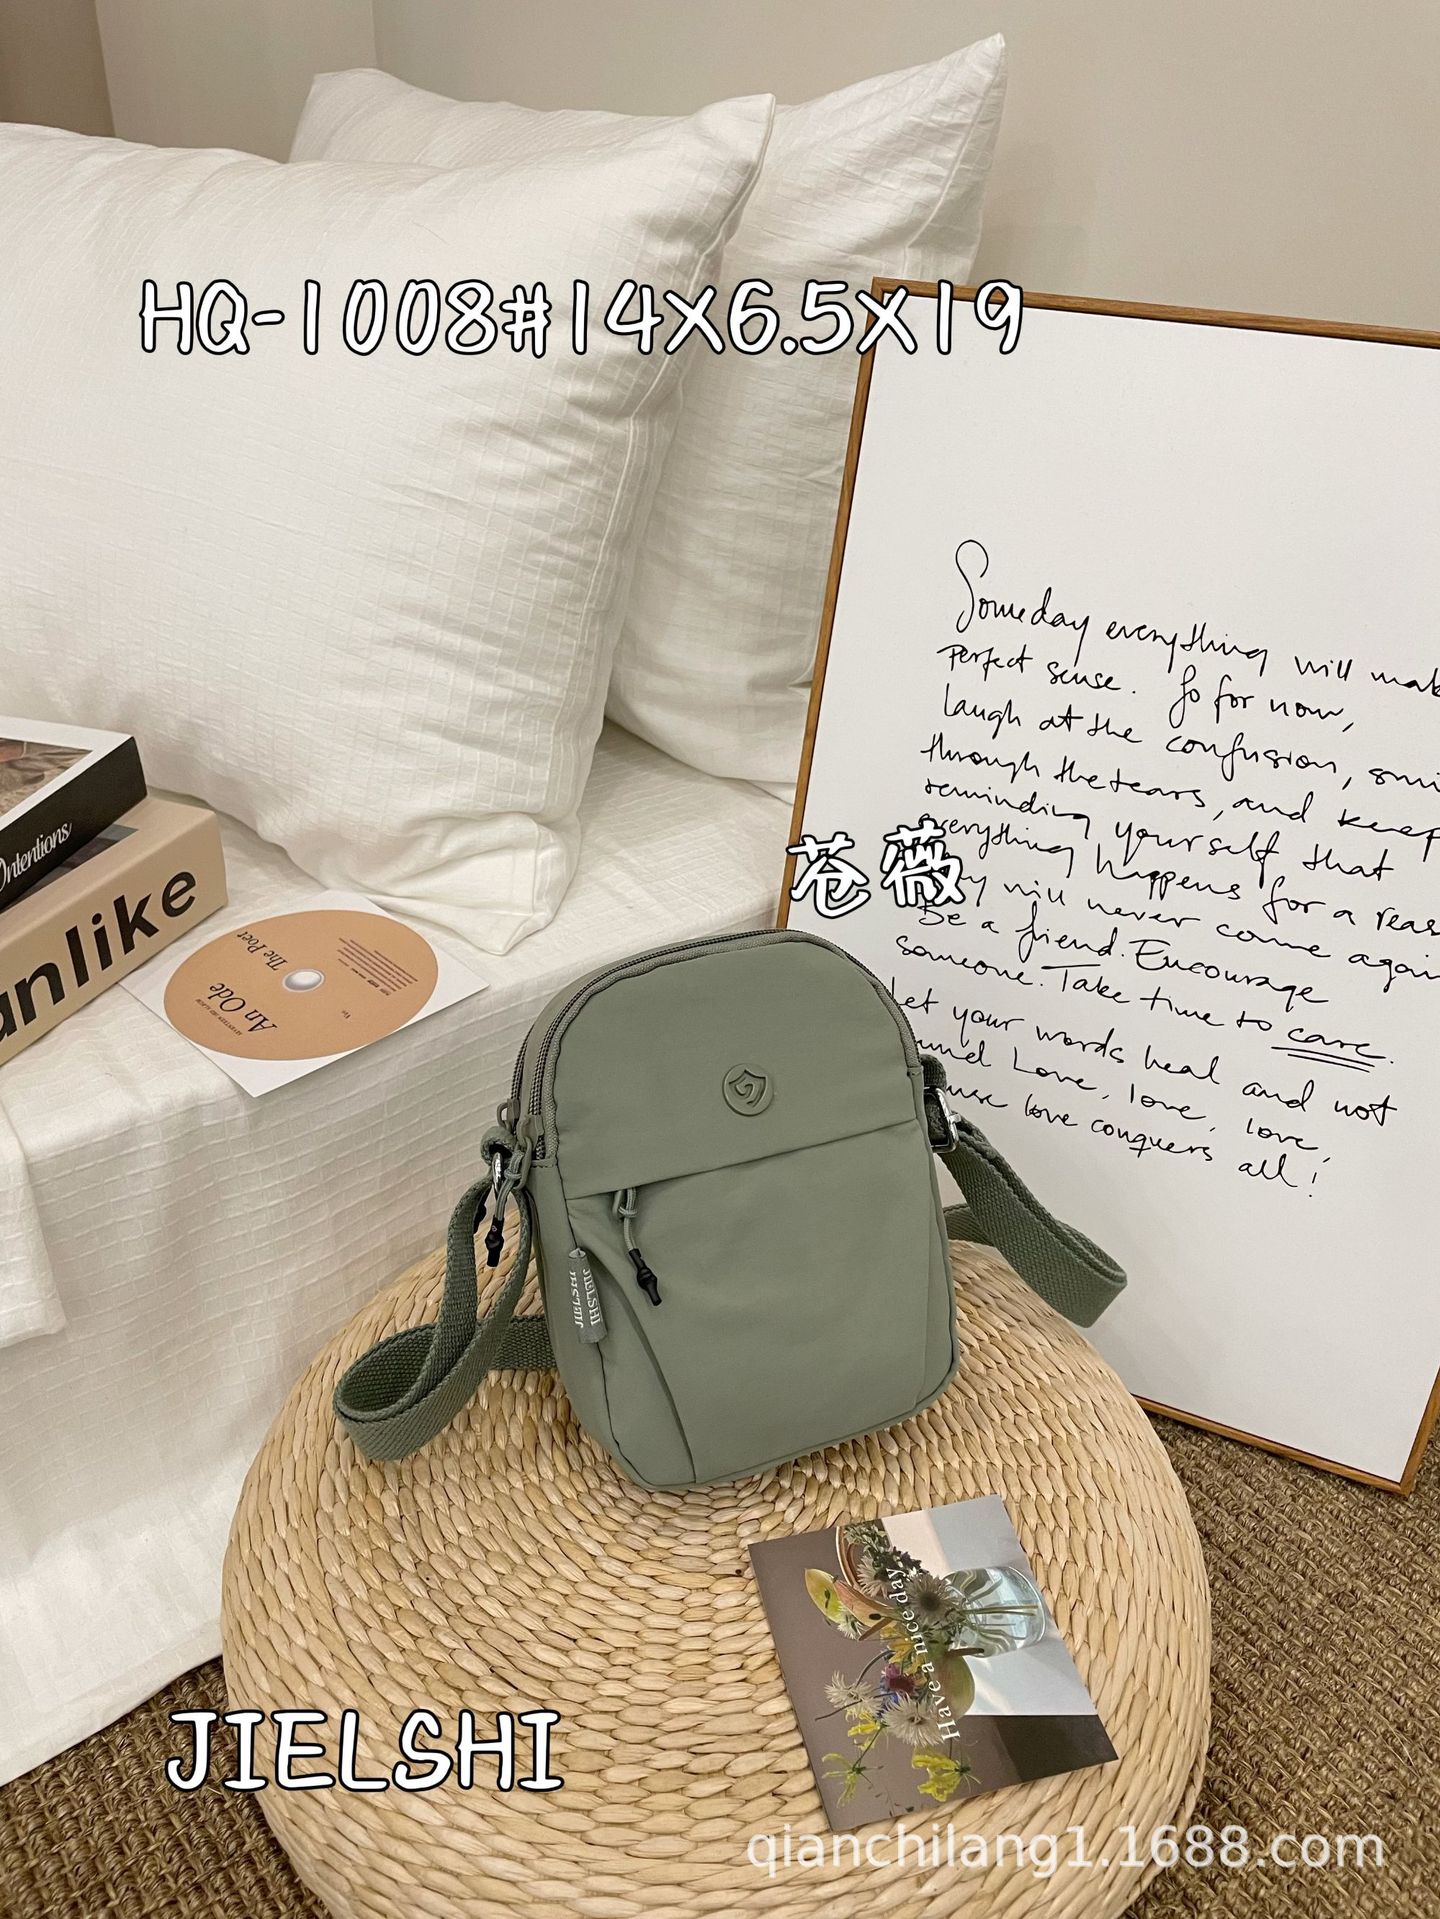 HQ-1008#14X6.5X19
Someday everything will mak
Perfect sense. So for now,
laugh at the confusion, smi
through the tears, and keep
reminding yourself that
everything happens for a reas
will never come again
Be a friend. Encourage
someone. Take time to care.
Let your words heal and not
Love, love, love,
love conquers all!
苍薇
Intentions
anlike
An Ode
The Poet
JIELSHI
JIELSHI
Have a nice day.
JIELSHI
qianchilang1.1688.com